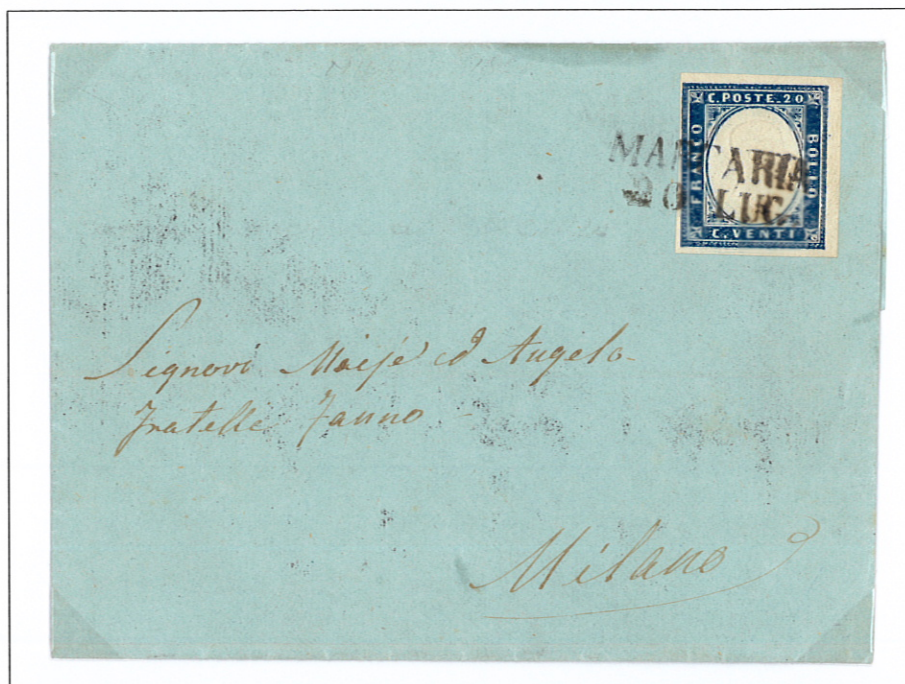 C. POSTE. 20
FRANCO
BOLLO
C. VENTI
MARCARIA
20 LUG.
Signori Moisè ed Angelo
Fratelli Fanno
Milano